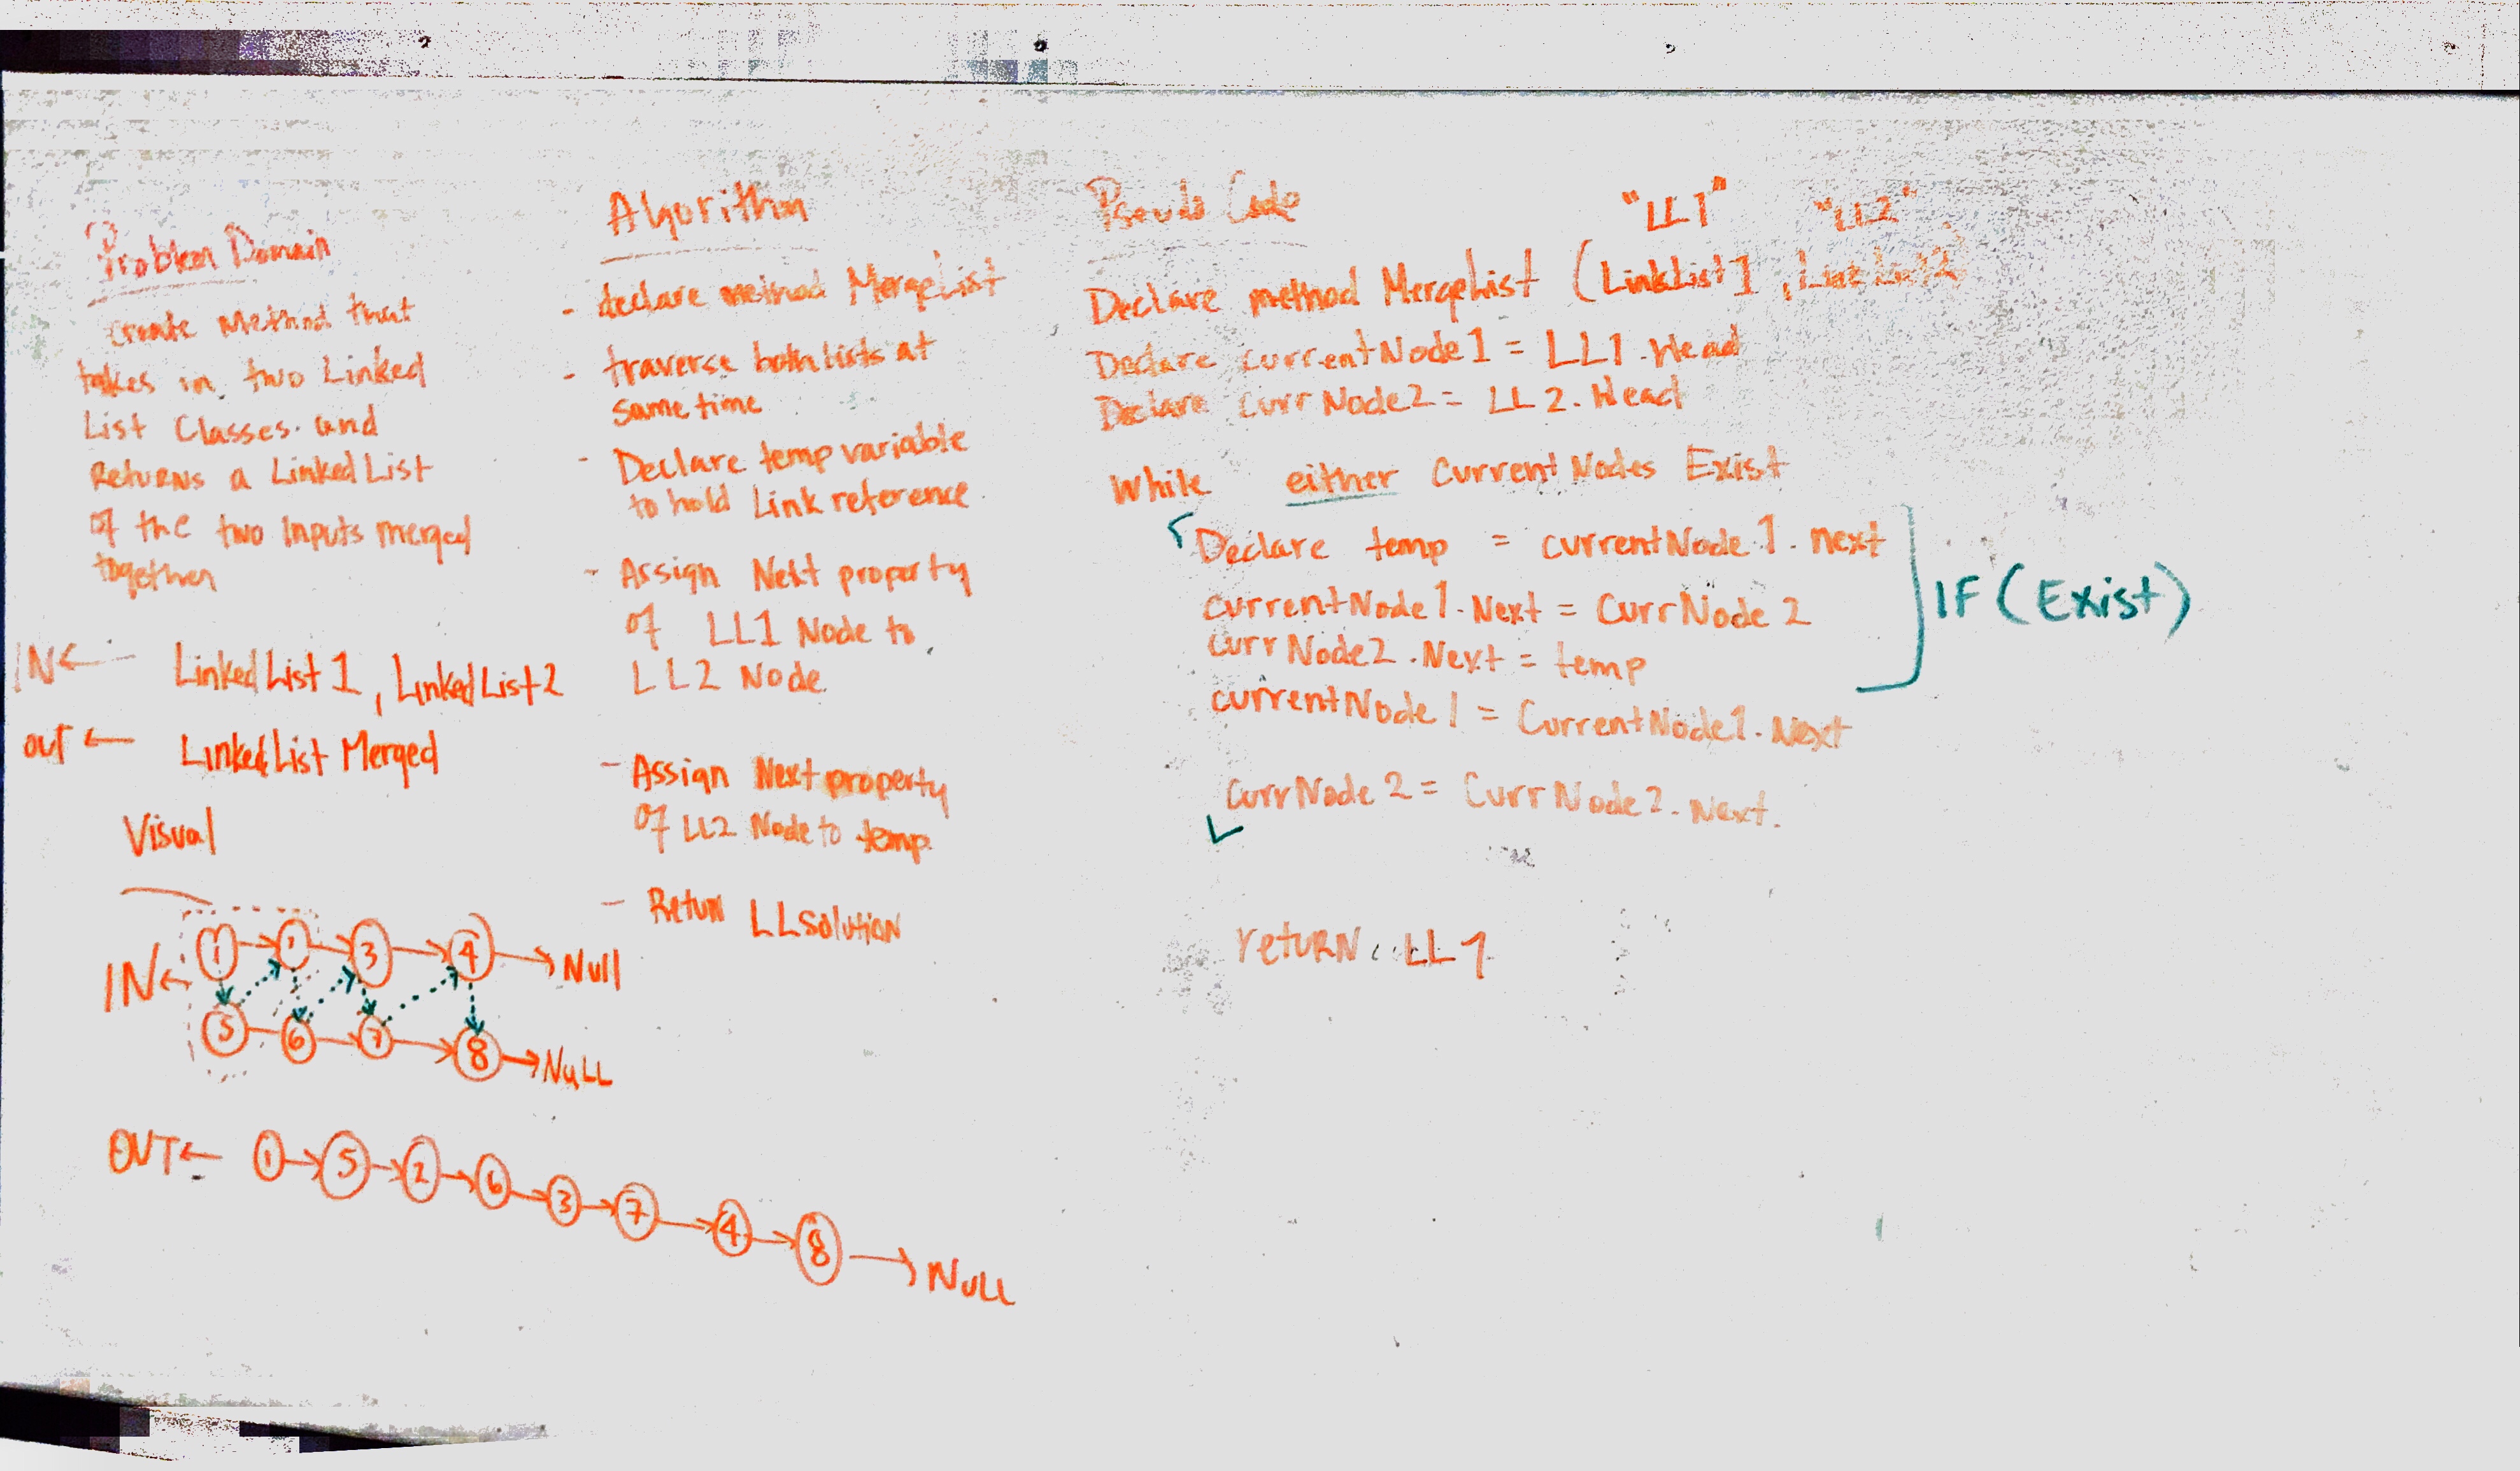 Problem Domain
Create Method that
takes in two Linked
List Classes. and
Returns a Linked List
of the two Inputs merged
together
IN ← Linked List 1, Linked List 2
out ← Linked List Merged
Visual
IN ← 1 → 2 → 3 → 4 → Null
5 → 6 → 7 → 8 → NULL
OUT ← 1 → 5 → 2 → 6 → 3 → 7 → 4 → 8 → NULL
Algorithm
- declare method MergeList
- traverse both lists at
same time
- Declare temp variable
to hold Link reference
- Assign Next property
of LL1 Node to
LL2 Node
- Assign Next property
of LL2 Node to temp.
- Return LLSolution
Pseudo Code
"LL1" "LL2"
Declare method MergeList (LinkList1, LinkList2
Declare currentNode1 = LL1.Head
Declare currNode2 = LL2.Head
While either Current Nodes Exist
Declare temp = currentNode1.next
currentNode1.Next = CurrNode2
currNode2.Next = temp
IF (Exist)
currentNode1 = CurrentNode1.Next
CurrNode2 = CurrNode2.Next.
return LL1